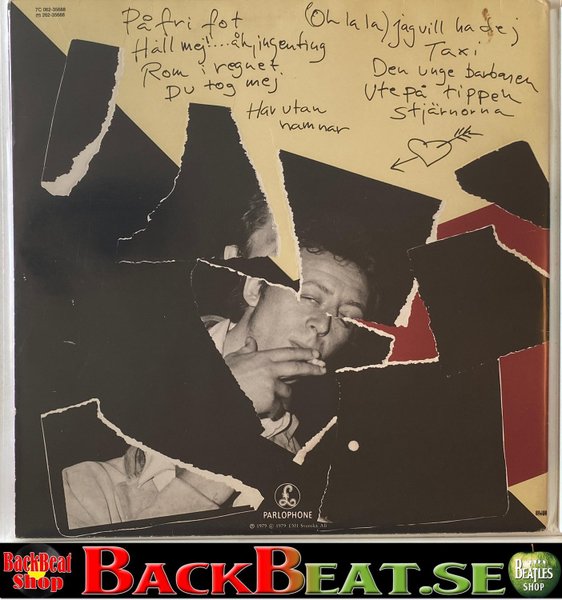 7C 062-35688
Ⓜ 262-35688
På fri fot
Håll mej!...åh, ingenting
Rom i regnet
Du tog mej
Hav utan
namnar
(Oh la la) jag vill ha dej
Taxi
Den unge barbaren
Ute på tippen
Stjärnorna
£
PARLOPHONE
Ⓟ 1979 © 1979 EMI Svenska AB
BackBeat
Shop
BACKBEAT.SE
BEATLES
SHOP